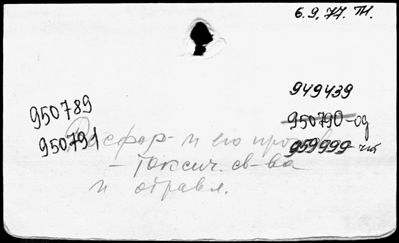 6.9.77. Тт.
949439
950789
950790-од
950791
Фосфор- и его произв
959999-чит
-токсич. св-ва
и отравл.